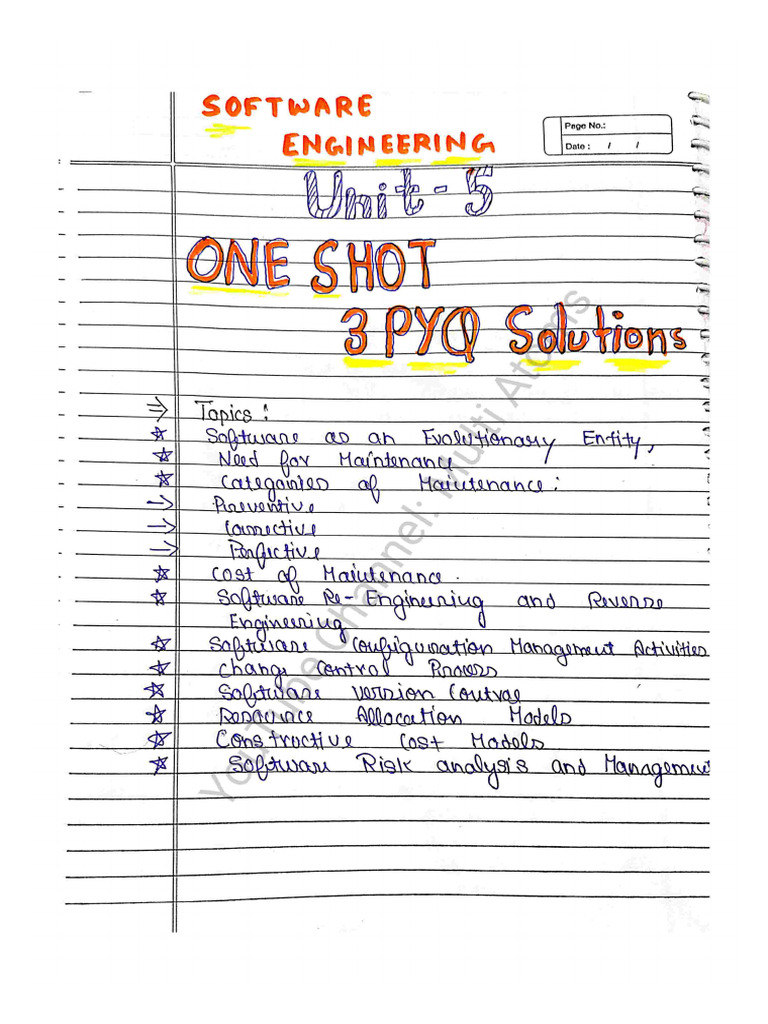 SOFTWARE
ENGINEERING
Page No.:
Date : / /
Unit - 5
ONE SHOT
3 PYQ Solutions
⇒ Topics :
☆ Software as an Evolutionary Entity,
☆ Need for Maintenance
☆ Categories of Maintenance :
→ Preventive
→ Corrective
→ Perfective
☆ Cost of Maintenance.
☆ Software Re-Engineering and Reverse
Engineering
☆ Software Configuration Management Activities
☆ Change Control Process
☆ Software Version Control
☆ Resource Allocation Models
☆ Constructive Cost Models
☆ Software Risk analysis and Management
YouTube Channel: Multi Atoms